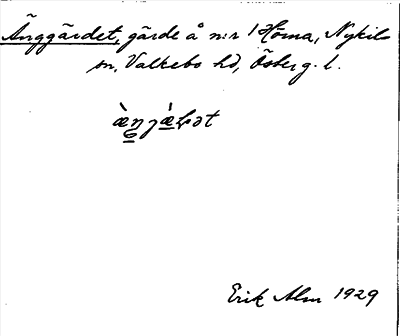 Änggärdet, gärde å n:r 1 Horna, Nykils
sn, Valkebo hd, Österg. l.
Erik Alm 1929